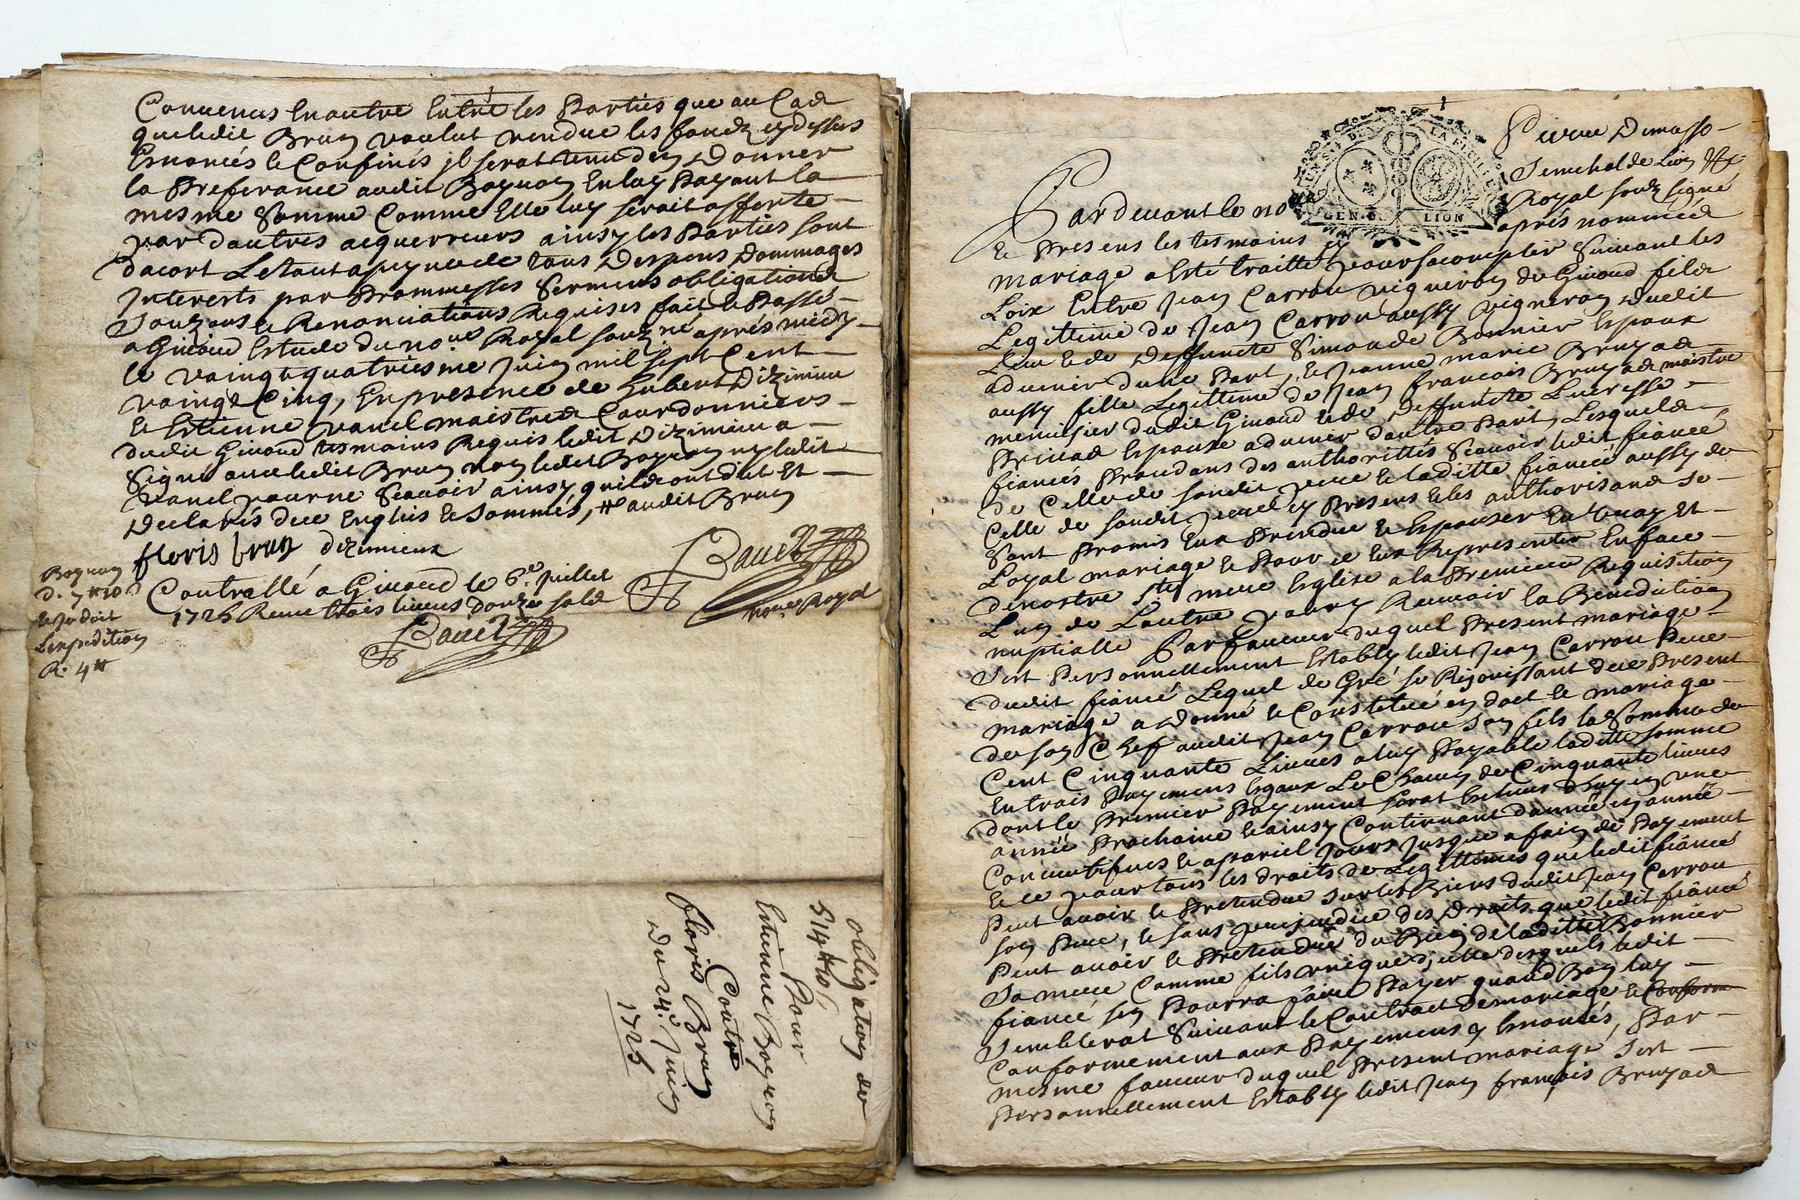 Conuenus En outre Entre les Parties que au Cas
que ledit Brun voulut vendre les fonds cydessus
Enoncés & Confinés jl serat tenu den Donner
la Preferance audit Boyron En luy Payant la
mesme Somme Comme Elle luy serait offerte
par dautres acquerreurs ainsy les Parties sont
dacort Letout a peyne de tous Despens Dommages
Interests par Prommesses Sermens obligations
Renonciations Requises fait & Passé
a Givord Estude du no.re Royal souz.né aprés midy
le vaingt quatriesme Juin mil sept Cent
vaingt Cinq, En presence de hubert Dizimieu
& Estienne vanel maistres Courdonniers
dudit Givord tesmoins Requis ledit Dizimieu a
Signé auec ledit Brun non ledit Boyron ny ledit
Vanel pour ne Scauoir ainsy quils ont dit Et
Declarés de ce Enquis & Sommés, audit Brun
floris brun dizimieux
Contrallé a Givord le 6.e Juillet
1725 Receu trois liures douze sols
no.re Royal
Lexpedition
R. 4#
obligation de
514# 10s
Pour
Etienne Boyron
Contre
floris Brun
Du 24.e Juin
1725
GEN. D. LION
Pierre Dumasso
Senechal de Lion &c
Pardeuant le no
Royal souz signé
& Presens les tesmoins
aprés nommés
mariage a Esté traitté pour sacomplir Suiuant les
Loix Entre Jean Carrou vigneron de Givord fils
Legittime de Jean Carrou aussy vigneron dudit
Lieu & de Deffuncte Simonde Bonnier Espoux
aduenir dune Part, & Jeanne marie Bruyas
aussy fille Legittime de Jean francois Bruyas maistre
menuisier dudit Givord & de Deffuncte Lucresse
Espouse aduenir dautre Part, Lesquels
fiancés Procedans des authorittés Scauoir ledit fiancé
de Celle de sondit pere & laditte fiancée aussy de
Celle de sondit pere cy Presens & les authorisand se
Sont Promis Eux Prendre & Espouser En vray Et
Loyal mariage & Pour ce Eux Representer En face
de nostre S.te mere Eglise a la Premiere Requisition
Lun de Lautre pour y Receuoir la Benediction
nuptialle Par faueur duquel Present mariage
Sest Personnellement Estably ledit Jean Carrou Pere
dudit fiancé Lequel de Gré se Rejouissant du Present
mariage a Donné & Constitué en doct & mariage
de son Chef audit Jean Carrou son fils la Somme de
Cent Cinquante Liures a luy Payable laditte somme
En trois Payemens Egaux Le Chacun de Cinquante liures
dont le Premier Payement serat
année Prochaine & ainsy Continuant dannée en année
Concecutifues & a pareil Jours Jusque a fain de Payement
& ce pour tous les droits de Legittimes que ledit fiancé
Peut auoir & Pretendre sur les Biens dudit Jean Carrou
son Pere, & sans prejudice des Droits que ledit fiancé
Peut auoir & Pretendre du Bien de laditte Bonnier
Sa mere Comme fils vnique dicelle desquels ledit
fiancé sen Pourra faire Payer quand Bon luy
Semblerat Suiuant le Contrat de mariage & Conform
Conformement aux Payemens y Enoncés, Par
mesme faueur duquel Present mariage Sest
Personnellement Estably ledit Jean francois Bruyas